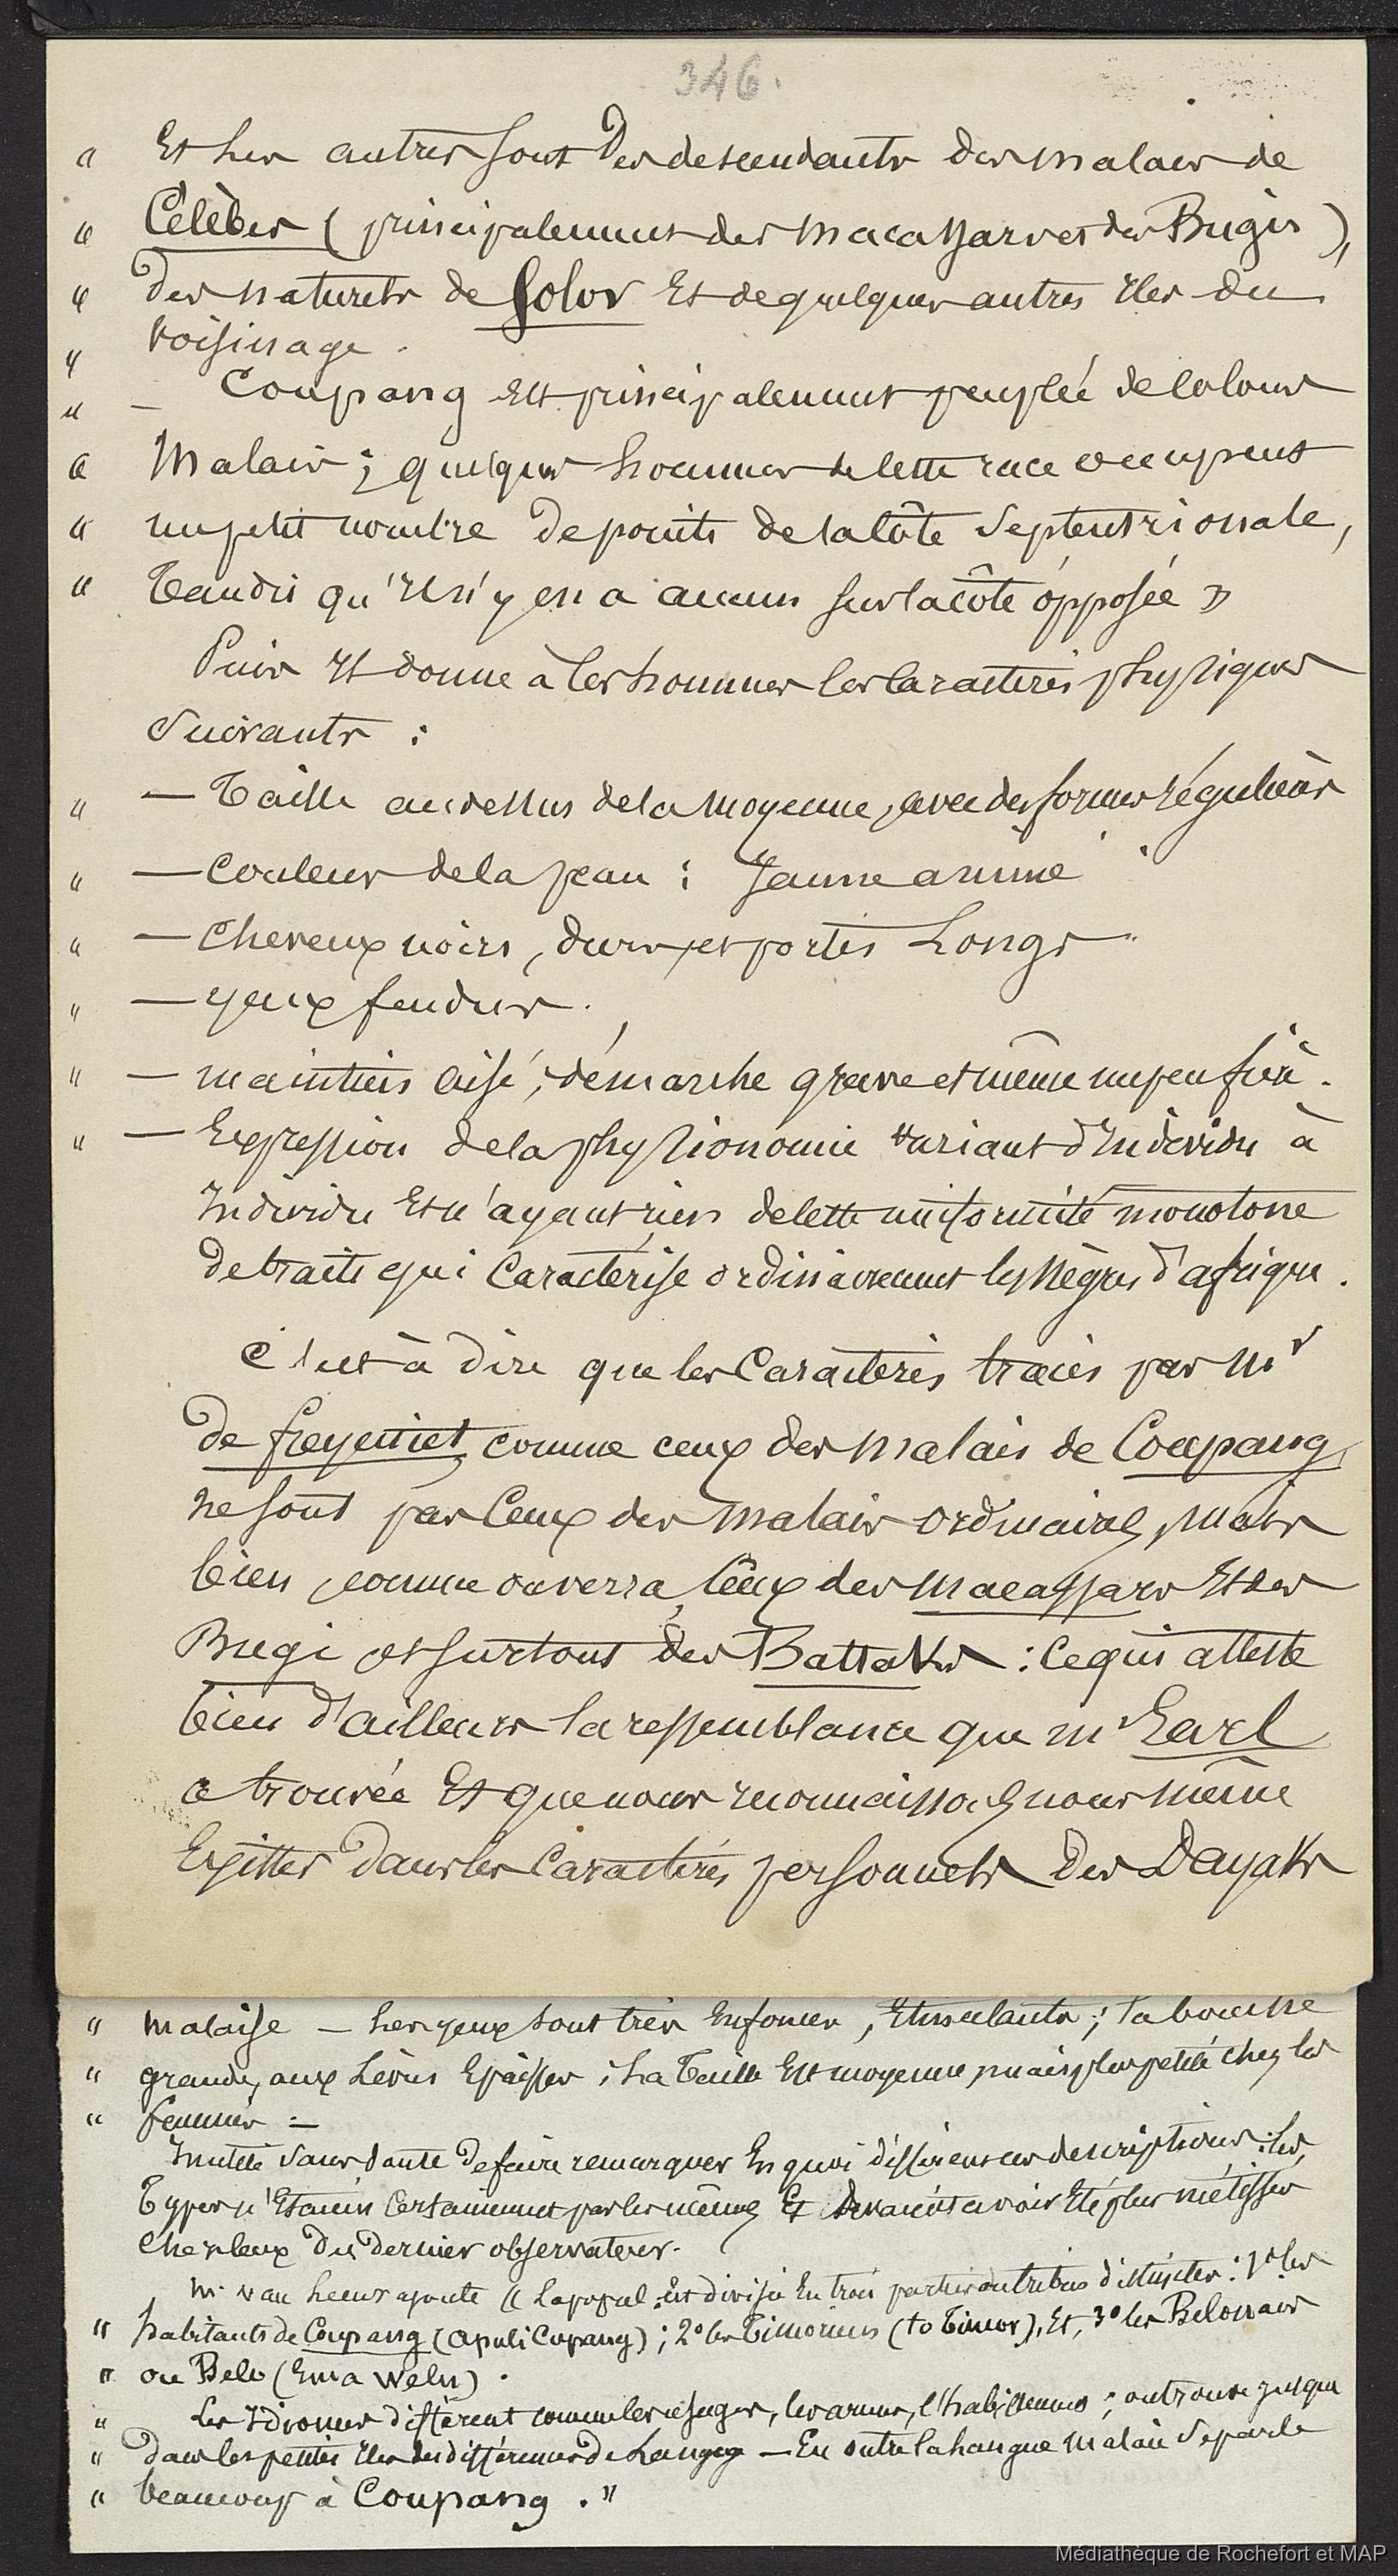 346.
" Et les autres sont des descendants des malais de
" Célèbes (principalement des macassars et des Bugis),
" des naturels de Solor Et de quelques autres Iles du
" voisinage.
" — Coupang est principalement peuplée de colons
" Malais ; quelques hommes de cette race occupent
" un petit nombre de points de la côte Septentrionale,
" Tandis qu'il n'y en a aucun sur la côte opposée »
Puis Il donne à ces hommes les caractères physiques
Suivants :
" — Taille au dessus de la moyenne, avec des formes régulières
" — Couleur de la peau : Jaune animé
" — Cheveux noirs, durs, et portés Longs
" — yeux fendus.
" — maintien aisé, démarche grave et même un peu fière.
" — Expression de la physionomie variant d'Individu à
Individu Et n'ayant rien de cette uniformité monotone
de traits qui Caractérise ordinairement les Nègres d'afrique.
C'est à dire que les Caractères tracés par Mr
de freycinet, comme ceux des malais de Coupang,
ne sont pas Ceux des malais ordinaires, mais
bien, comme on verra, Ceux des macassars Et des
Bugi et surtout des Battaks : ce qui atteste
bien d'ailleurs la ressemblance que mr Earl
a trouvée Et que nous reconnaissons nous même
Exister dans les Caractères personnels des Dayaks
" malaise — Les yeux sont très Enfoncés, Etincelants ; la bouche
" grande, aux Lèvres Epaisses ; La Taille Est moyenne, mais plus petite chez les
" femmes =
Inutile sans doute de faire remarquer En quoi diffèrent ces descriptions : les
Types n'Etaient Certainement pas les mêmes Et devaient avoir Eté plus métissés
chez ceux du dernier observateur.
Mr van heens ajoute « La popul. Est divisée En trois parties ou tribus distinctes : 1° les
" habitants de Coupang (apuli Cupang) ; 2° les Timoriens (to Timor), Et, 3° les Belonais
" ou Belo (Ema Welu).
" Les Idiomes diffèrent comme les usages, les armes, l'habillement ; on trouve jusque
" dans les petites Iles des différences de Langage — En outre la Langue malaie se parle
" beaucoup à Coupang. "
Médiathèque de Rochefort et MAP